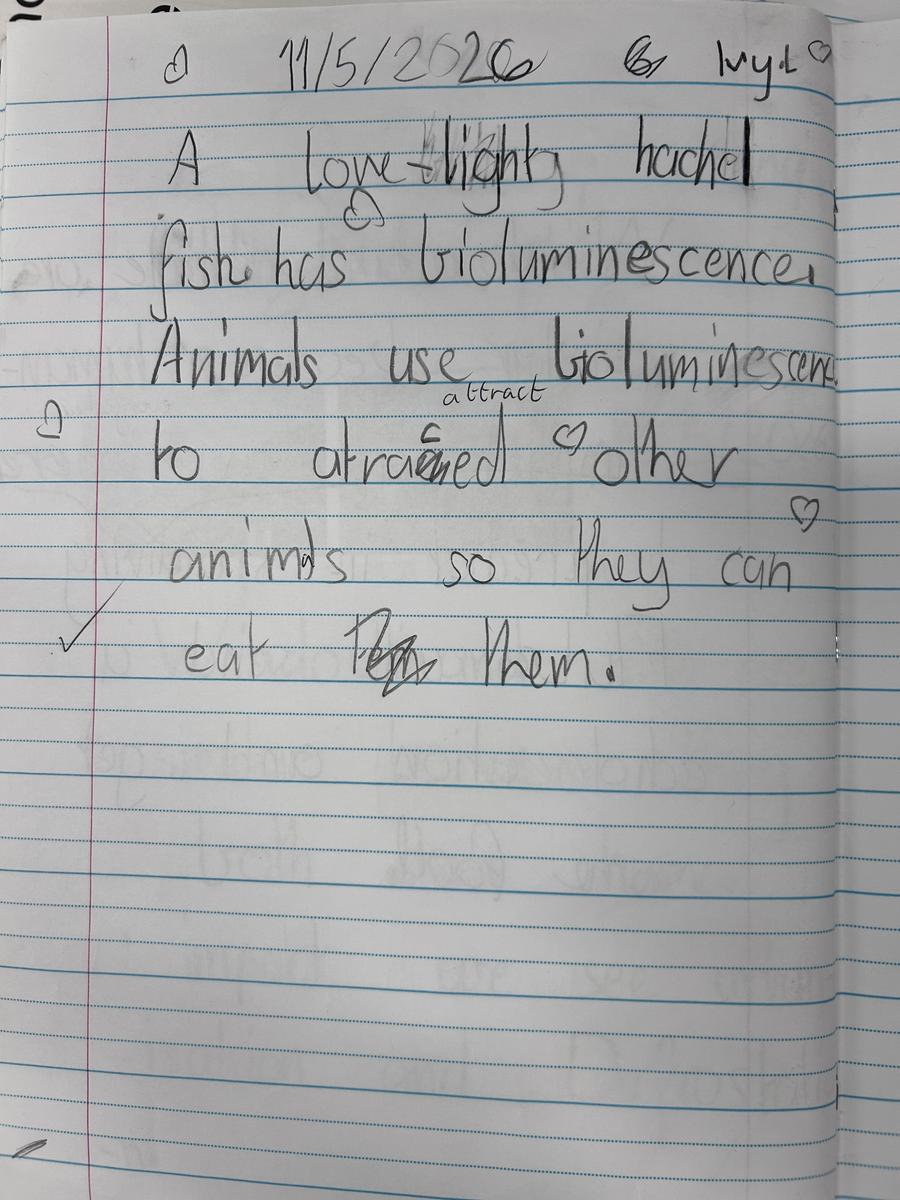 11/5/2026 Ivy.L
A lowe-lighty hachel
fish has bioluminescence.
Animals use bioluminescenc
attract
to atraced other
animals so they can
eat them.